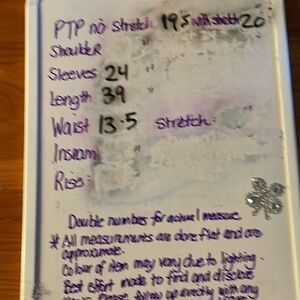 PTP no stretch 19.5 with stretch 20"
Shoulder "
Sleeves 24 "
Length 39 "
Waist 13.5 Stretch:
Inseam "
Rise: "
Double numbers for actual measure
* All measurements are done flat and are
approximate.
Colour of item may vary due to lighting.
Best effort made to find and disclose
follow up directly with any